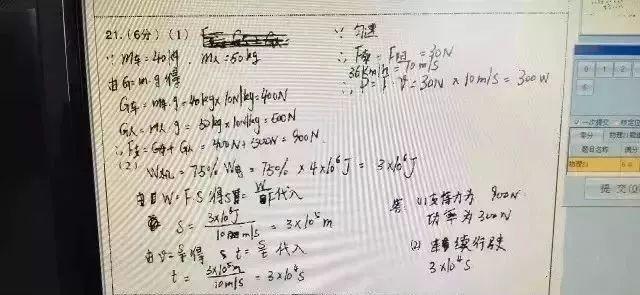 21.(6分) (1)
∵ m车=40kg . m人=50kg
由G=m·g得
G车=m车.g=40kg×10N/kg=400N
G人=m人.g=50kg×10N/kg=500N
∴F支=G车+G人=400N+500N=900N.
(2)
W机=75% W电=75% × 4×10⁶J = 3×10⁶J
W=F·S 得S= 代入
S= 3×10⁶J = 3×10⁵m
由 得 t= 代入
t= 3×10⁵m / 10m/s =3×10⁴s
∵ 匀速
∴ F牵=F阻=30N
36km/h=10m/s
∴ P=F·v=30N×10m/s=300W
答: (1)支持力为 900N
功率为300W
(2) 续行驶
3×10⁴s
一次提交
题号 物理21题
题目名称 满分
物理21
提交